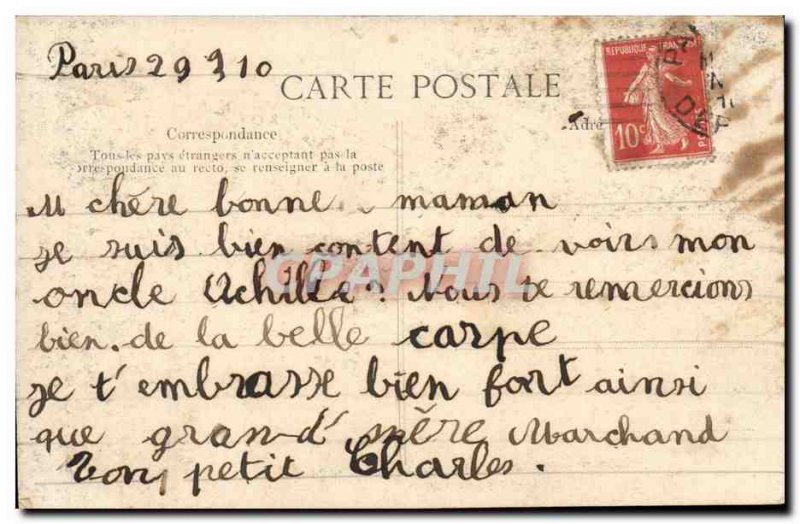 Paris 29 3 10
CARTE POSTALE
REPUBLIQUE FRANÇAISE
10c
POSTES
Correspondance
Tous les pays étrangers n'acceptant pas la
correspondance au recto, se renseigner à la poste
Adre
M chère bonne maman
je suis bien content de voirs mon
oncle Achille. Nous te remercions
bien de la belle carpe
je t'embrasse bien fort ainsi
que grand' mère Marchand
Ton petit Charles.
CPAPHIL